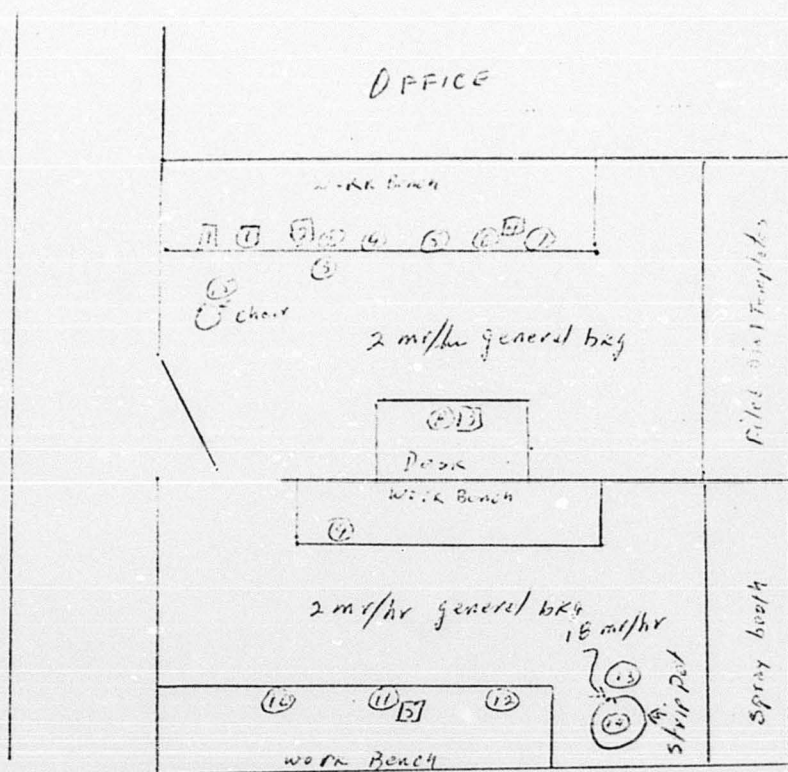 OFFICE
Work Bench
1 1 2 4 5 6 4 7
3
chair
2 mr/hr general bkg
8 3
Desk
Work Bench
9
2 mr/hr general bkg
18 mr/hr
13
10 11 5 12
14
strip pot
Work Bench
Templates
Spray booth